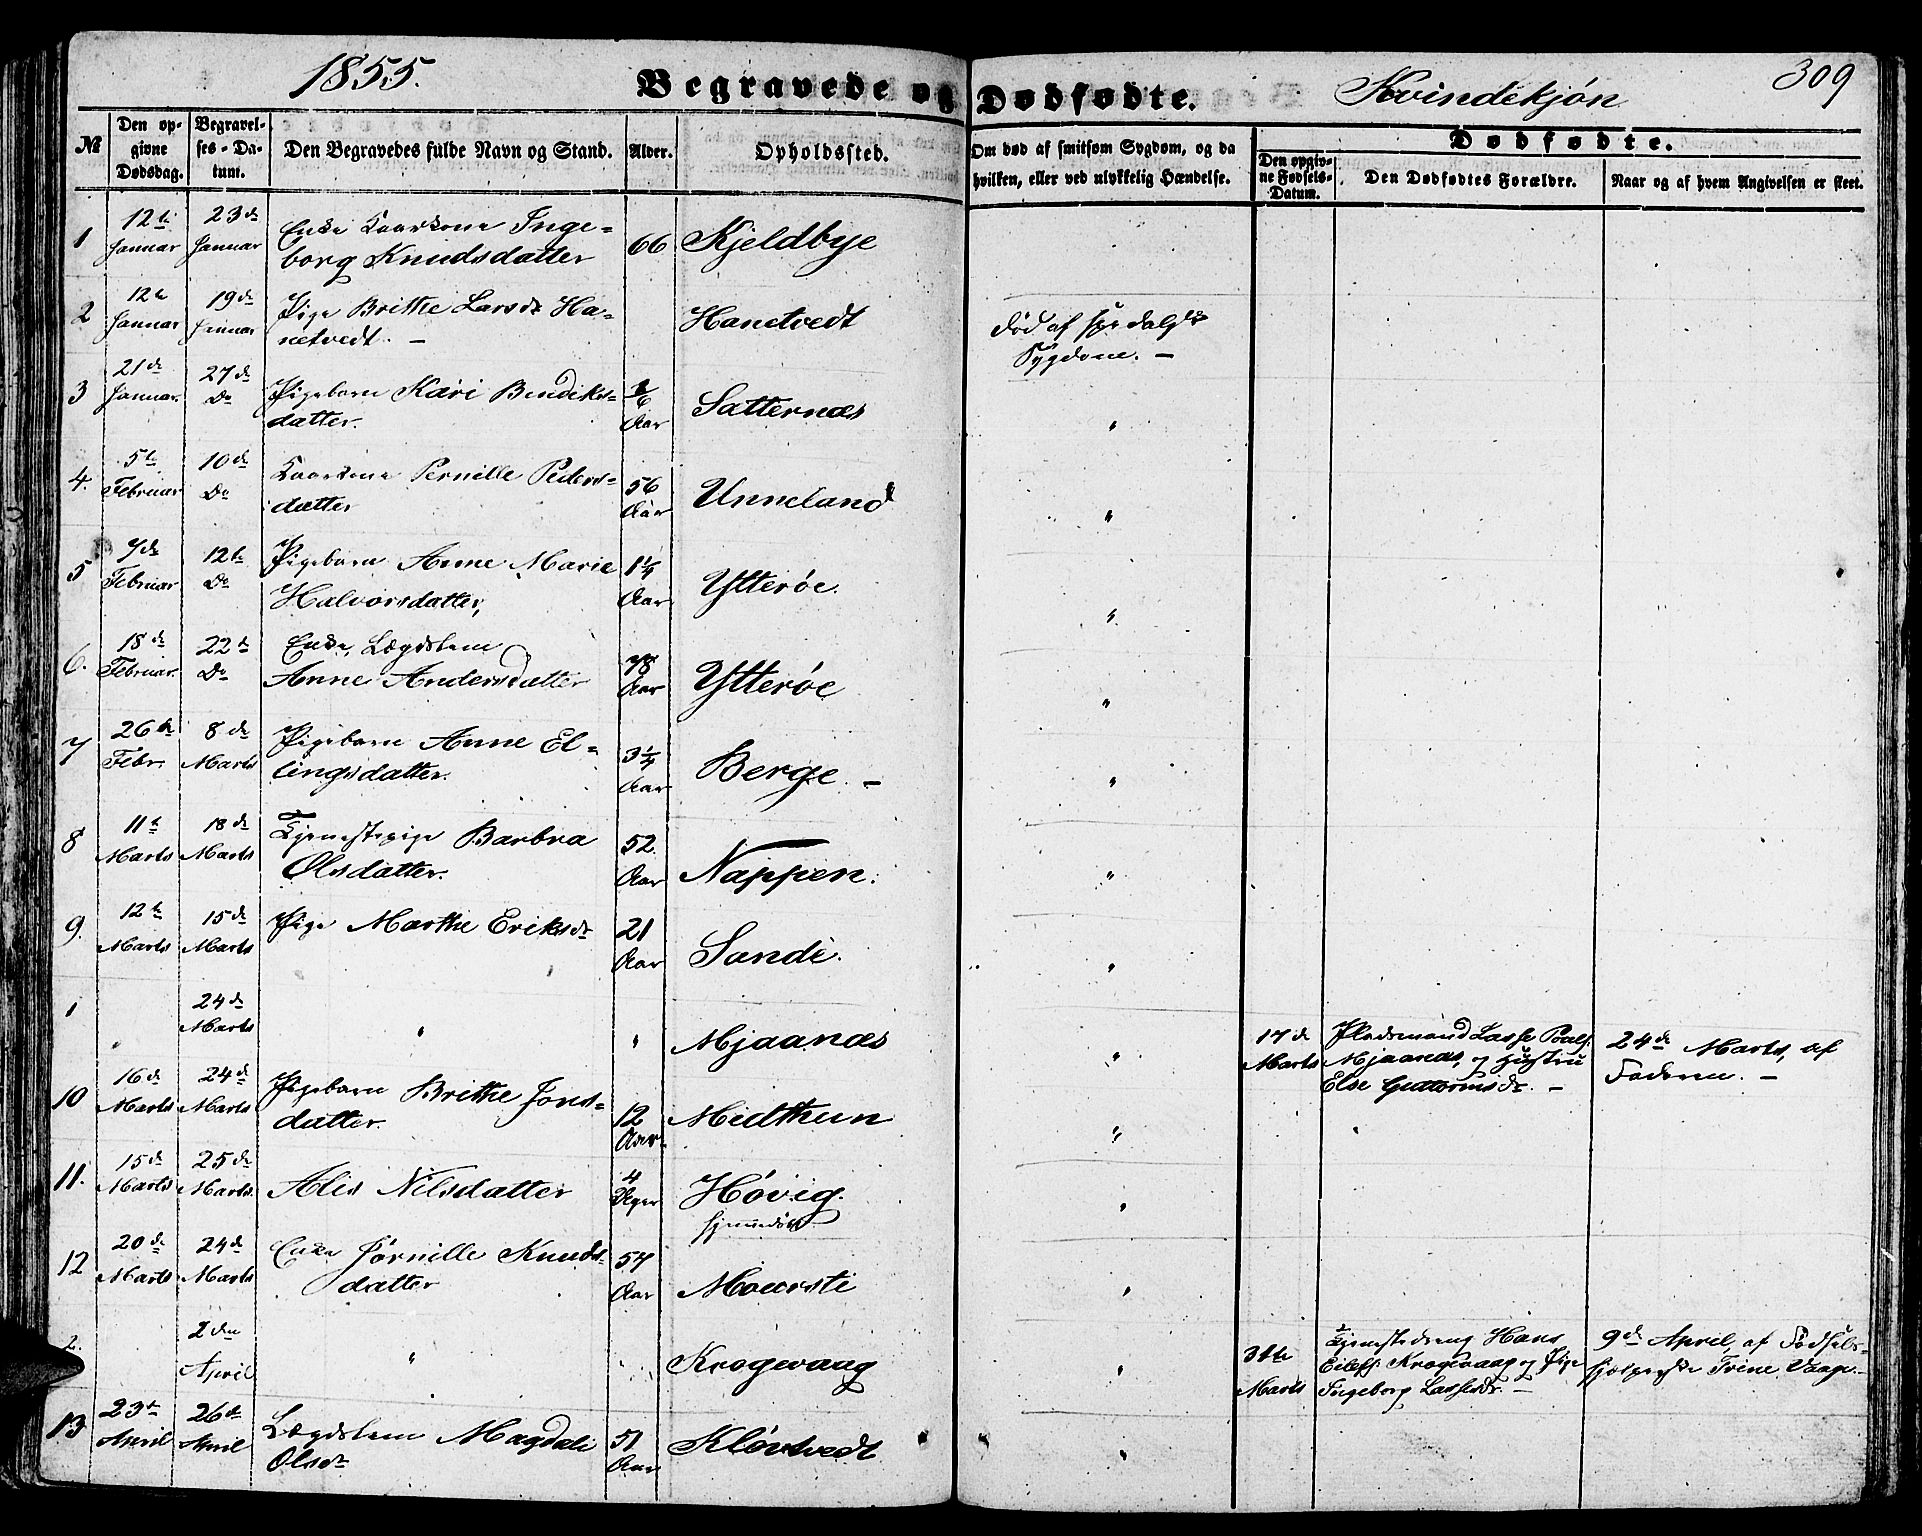 1855. Begravede og Dødfødte. Kvindekjøn 309
№
Den op-
givne
Dødsdag.
Begravel-
ses-Da-
tum.
Den Begravedes fulde Navn og Stand.
Alder.
Opholdssted.
Om død af smitsom Sygdom, og da
hvilken, eller ved ulykkelig Hændelse.
Dødfødte.
Den opgiv-
ne Fødsels-
Datum.
Den Dødfødtes Forældre.
Naar og af hvem Angivelsen er skeet.
1 12te Januar 23de Januar Enke Kaarkone Inge=
borg Knudsdatter 66 Kjeldbye
2 12te Januar 19de Januar Pige Brithe Larsdr Ha-
netvedt. — Hanetvedt død af spedalsk
Sygdom. —
3 21de Januar. 27de Do Pigebarn Kari Bendiks=
datter. 1/6 Aar Satternæs "
4. 5te Februar 10de Do Kaarkone Pernille Peders=
datter 56 Aar Unneland "
5 7de Februar 12te Do Pigebarn Anne Marie
Halvorsdatter, 1¼ Aar Ytterøe. "
6. 18de Februar. 22de Do Enke, Lægdslem
Anne Andersdatter 78 Aar Ytterøe "
7 26de Febr. 8de Marts Pigebarn Anne El=
lingsdatter. 3¼ Aar Berge. — "
8 11te Marts 18de Marts Tjenestepige Barbra
Olsdatter. 52. Aar Nappen. "
9. 12te Marts 15de Marts Pige Marthe Eriksdr 21 Aar Sande. "
1 " 24de Marts " " Mjaanæs " 17de Marts Pladsmand Lasse Poals.
Mjaanæs, og Hustru
Else Guttormsdr. — 24de Marts, af
Faderen. —
10 16de Marts 24de Marts Pigebarn Brithe Jons=
datter. 12 Aar Midthun "
11. 15de Marts 25de Marts. Alis Nilsdatter 4 Uger Høvig.
hjemmedøbt. "
12 20de Marts 24de Marts Enke Jørnille Knuds=
datter 57 Aar Mourste "
2. 2den April " Krogevaag " 31te Marts Tjenestedreng Hans
Eilefs. Krogevaag og Pige
Ingeborg Lassesdr. — 9de April, af Fødsels=
hjelperske Trine Vaage. —
13 23de April 26de April Lægdslem Magdali
Olsdr 51 Aar Kløvtvedt "